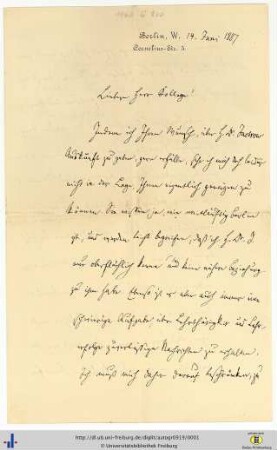 Berlin, W. 14. Juni 1887
Cornelius-Str. 5.
Lieber Herr Kollege!
Indem ich Ihren Wunsch, über H. Dr.
Auskunft zu geben, gern erfülle, sehe ich mich doch leider
nicht in der Lage, Ihnen eigentlich genügen zu
können. Sie wissen ja, wie weitläufig Berlin
ist, und werden leicht begreifen, daß ich H. Dr. J.
nur oberflächlich kenne und keine nähere Beziehung
zu ihm habe. Ebenso ist es aber auch immer eine
schwierige Aufgabe, über Lehrthätigkeit und Lehr-
erfolge zuverlässige Nachrichten zu erhalten.
Ich muß mich daher darauf beschränken, zu
http://dl.ub.uni-freiburg.de/diglit/autogr0919/0001
© Universitätsbibliothek Freiburg